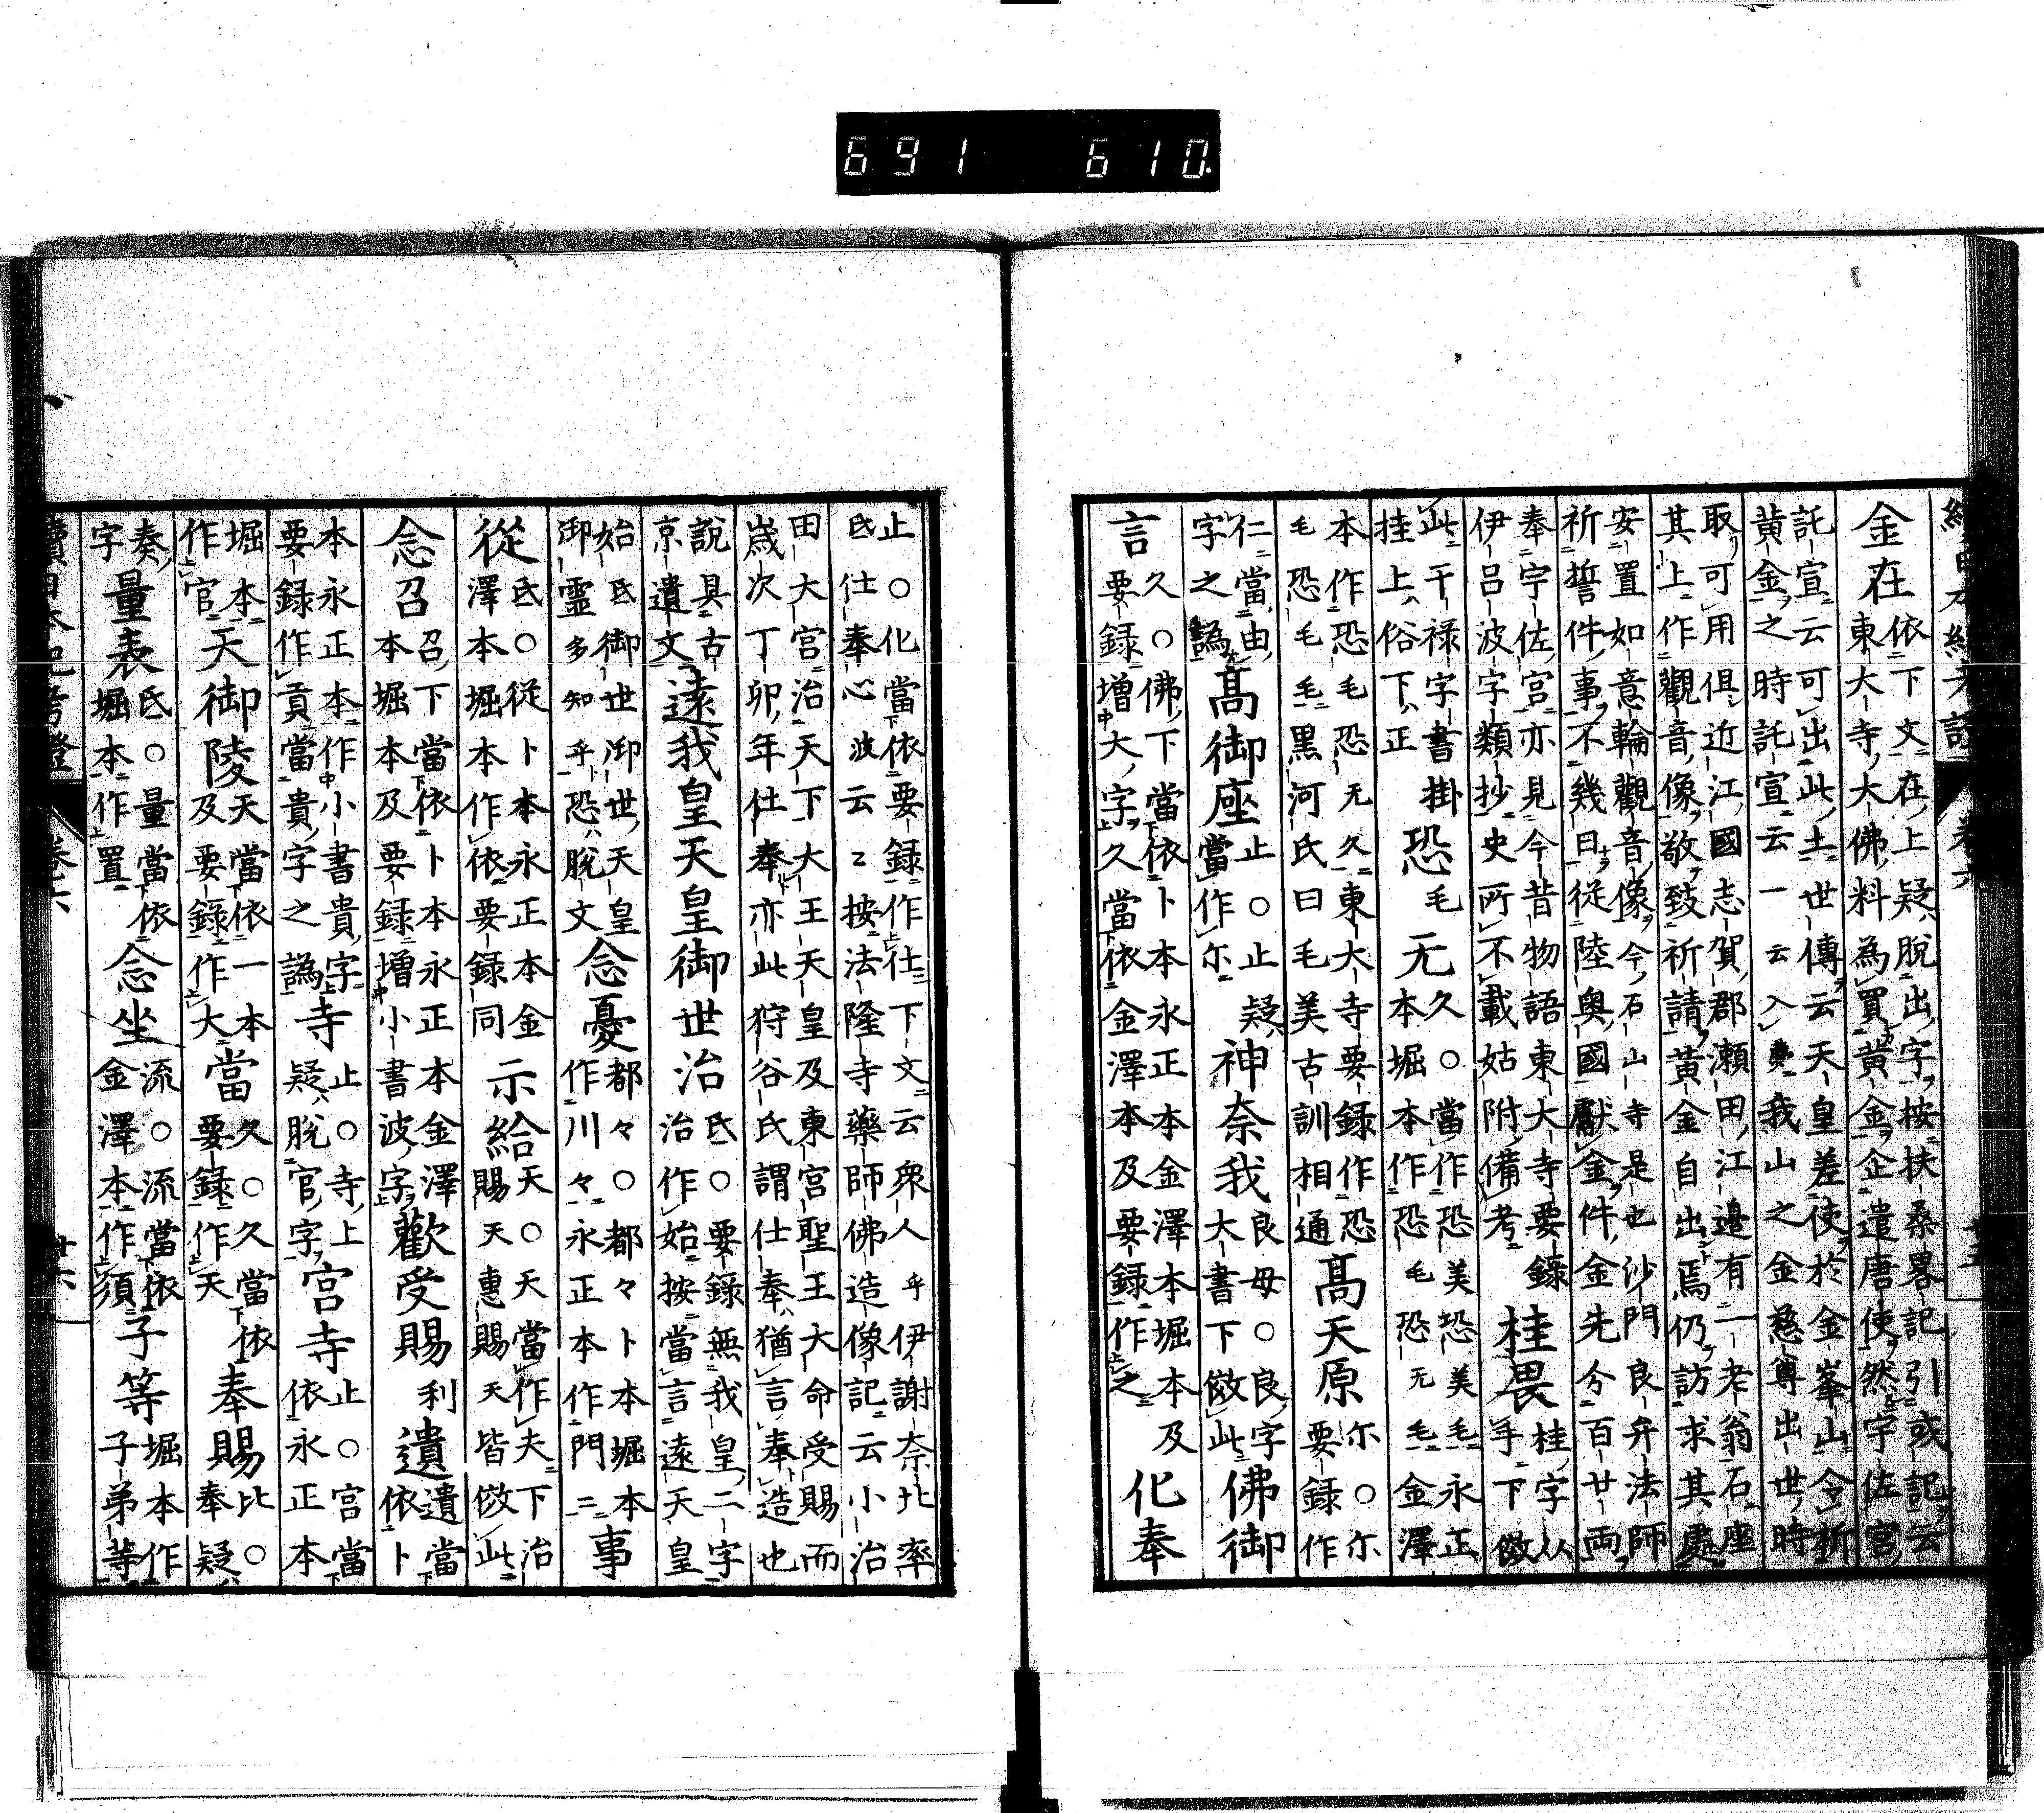 續日本紀考證 卷六 廿五
金在 依下文在上疑脱出字按扶桑畧記引或記云 東大寺大佛料為買黄金企遣唐使然宇佐宮
託宣云可出此土世傳云天皇差使於金峯山令祈 黄金之時託宣云一云入夢我山之金慈尊出世時
取可用俱近江國志賀郡瀬田江邊有一老翁石座 其上作觀音像敬致祈請黄金自出焉仍訪求其處
安置如意輪觀音像今石山寺是也沙門良弁法師 祈誓件事不幾日從陸奥國獻金件金先分百廿両
奉宇佐宮亦見今昔物語東大寺要録 伊呂波字類抄史所不載姑附備考 桂畏 桂字从手下倣
此干禄字書掛 桂上俗下正 恐毛无 久○當作恐美恐美毛永正 本堀本作恐毛恐无毛金澤
本作恐毛恐无久東大寺要録作恐 毛恐毛毛黒河氏曰毛美古訓相通 髙天原 尓○尓要録作
仁當由字之譌 髙御座 止○止疑當作尓 神奈我 良母○良字大書下倣此 佛御
言 久○佛下當依卜本永正本金澤本堀本及 要録増大字久當依金澤本及要録作之 化奉
止○化當依要録作仕下文云衆人乎伊謝奈比率 氐仕奉心波云々按法隆寺藥師佛造像記云小治
田大宮治天下大王天皇及東宮聖王大命受賜而 歳次丁卯年仕奉亦此狩谷氏謂仕奉猶言奉造也
說具古京遺文 遠我皇天皇御世治 氐○要録無我皇二字 治作始按當言遠天皇
始氐御世御世天皇 御靈多知乎恐脱文 念憂 都々○都々卜本堀本 作川々永正本作門二 事
從 氐○從卜本永正本金 澤本堀本作依要録同 示給 天○天當作夫下治 賜天惠賜天皆倣此
念召 召下當依卜本永正本金澤 本堀本及要録増小書波字 歡受賜 利 遺 遺當依卜
本永正本作小書貴字 要録作貢當貴字之譌 寺 止○寺上疑脱官字 宮寺 止○宮當依永正本
堀本作官 天御陵 天當依一本及要録作大 當 久○久當依要録作天 奉賜 比○奉疑
奏字 量表 氐○量當依堀本作置 念坐 流○流當依金澤本作須 子等 堀本作子弟等
續日本紀考證 卷六 廿六
691 610.